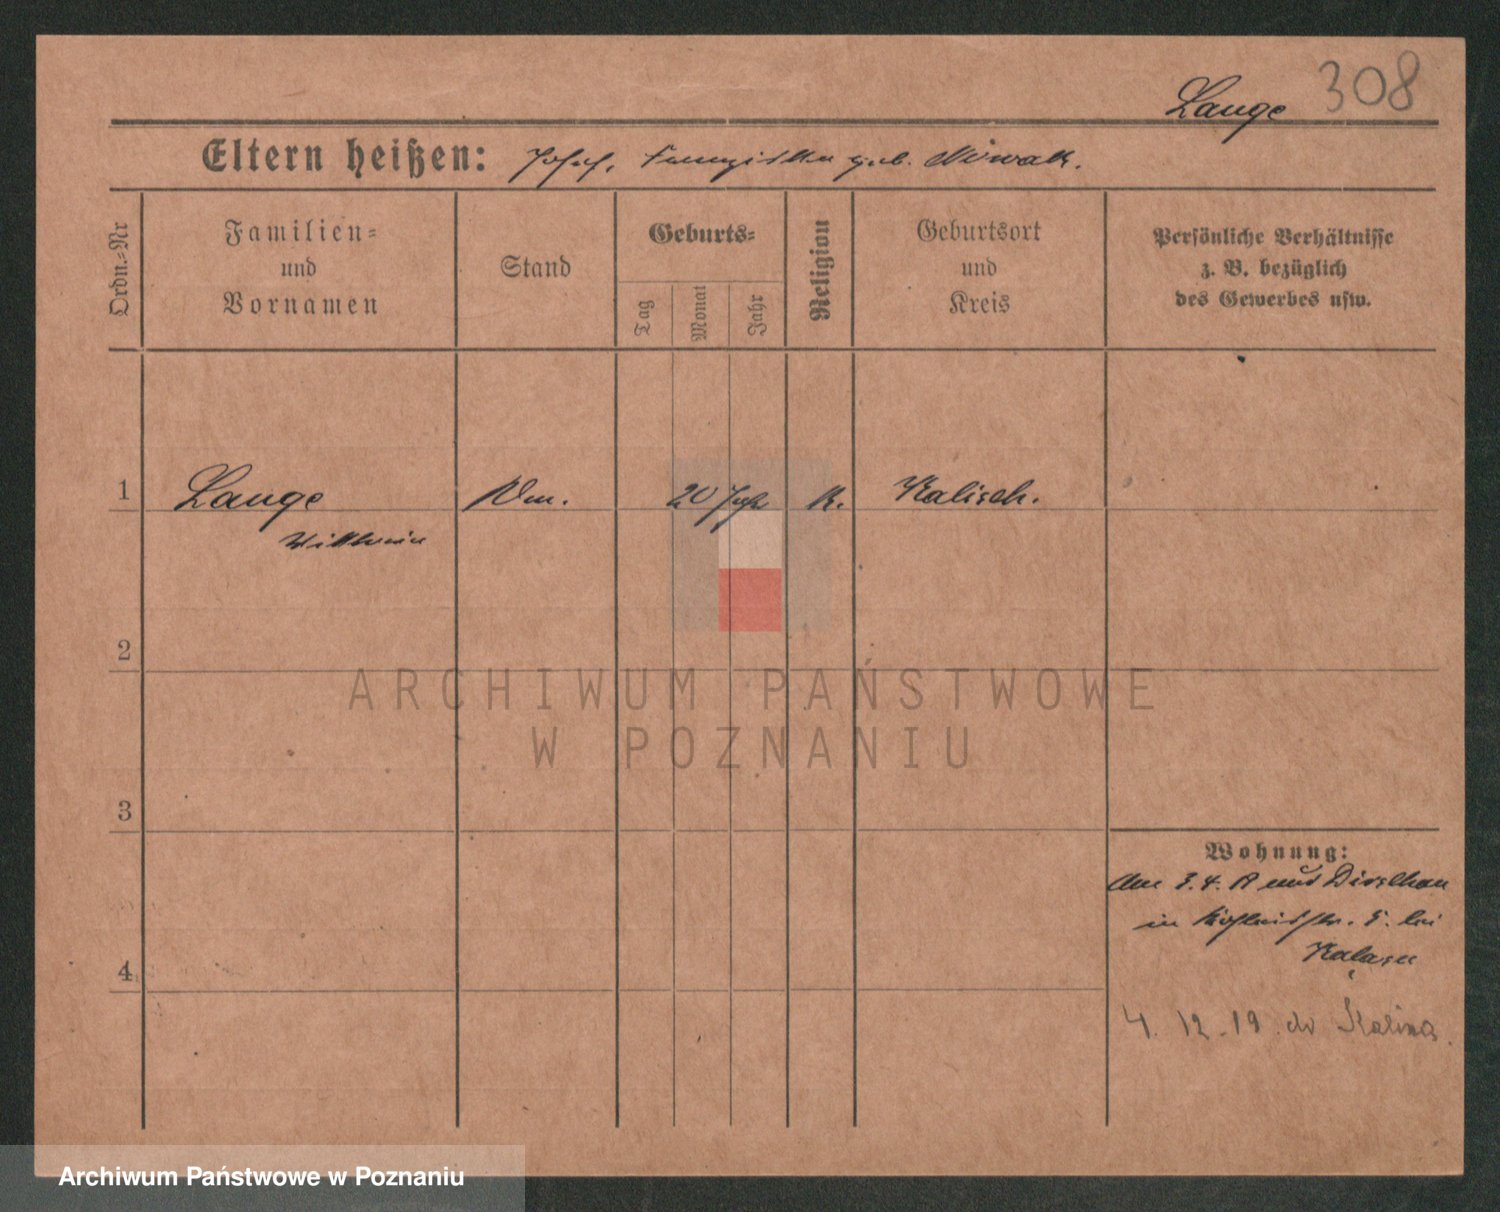 308
Lange
Eltern heißen: Josef, Franziska geb. Nowak.
Ordn.-Nr
Familien-
und
Vornamen
Stand
Geburts-
Tag
Monat
Jahr
Religion
Geburtsort
und
Kreis
Persönliche Verhältnisse
z. B. bezüglich
des Gewerbes usw.
1 Lange 20 Jahr K. Kalisch.
2
3
4
Wohnung:
Am 3. 4. 19 aus
in 5. bei
4. 12. 19. do
ARCHIWUM PAŃSTWOWE
W POZNANIU
Archiwum Państwowe w Poznaniu